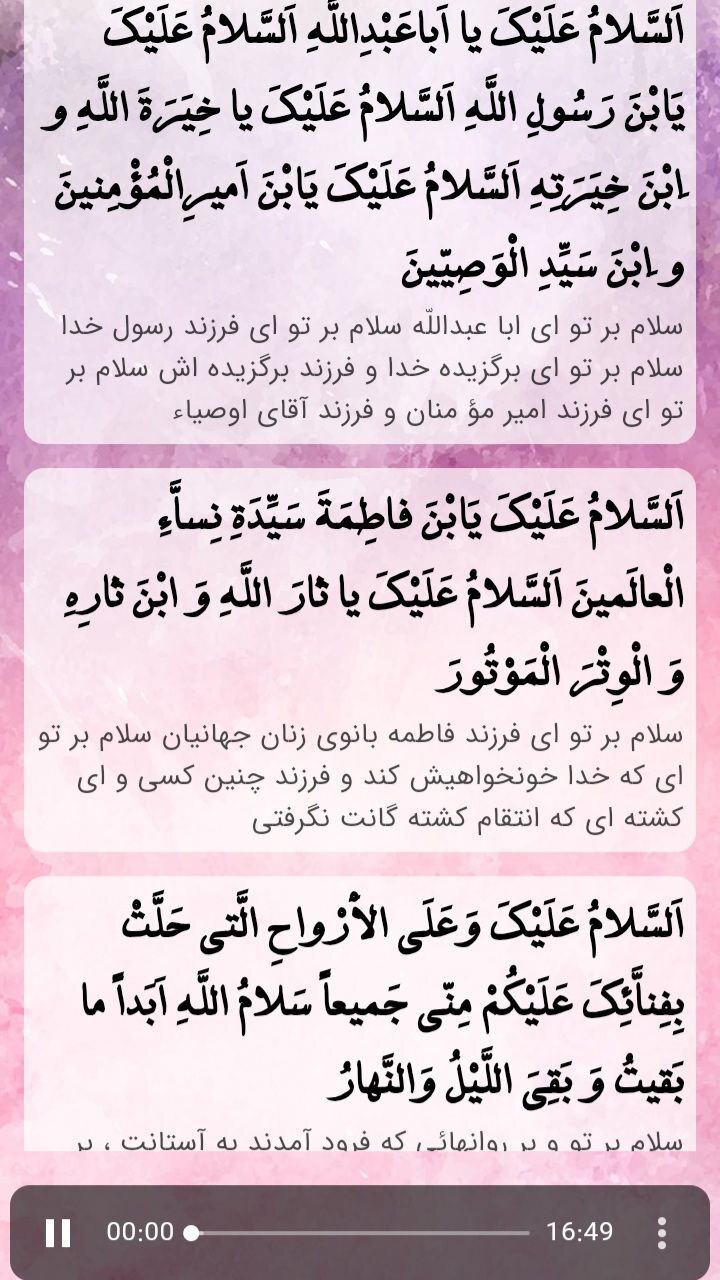 اَلسَّلامُ عَلَیْکَ یا اَباعَبْدِاللَّهِ اَلسَّلامُ عَلَیْکَ
یَابْنَ رَسُولِ اللَّهِ اَلسَّلامُ عَلَیْکَ یا خِیَرَةَ اللَّهِ و
َابْنَ خِیَرَتِهِ اَلسَّلامُ عَلَیْکَ یَابْنَ اَمیرِالْمُؤْمِنینَ
و َابْنَ سَیِّدِ الْوَصِیّینَ
سلام بر تو ای ابا عبداللّه سلام بر تو ای فرزند رسول خدا
سلام بر تو ای برگزیده خدا و فرزند برگزیده اش سلام بر
تو ای فرزند امیر مؤ منان و فرزند آقای اوصیاء
اَلسَّلامُ عَلَیْکَ یَابْنَ فاطِمَةَ سَیِّدَةِ نِساَّءِ
الْعالَمینَ اَلسَّلامُ عَلَیْکَ یا ثارَ اللَّهِ وَ ابْنَ ثارِهِ
وَ الْوِتْرَ الْمَوْتُورَ
سلام بر تو ای فرزند فاطمه بانوی زنان جهانیان سلام بر تو
ای که خدا خونخواهیش کند و فرزند چنین کسی و ای
کشته ای که انتقام کشته گانت نگرفتی
اَلسَّلامُ عَلَیْکَ وَعَلَی الاَْرْواحِ الَّتی حَلَّتْ
بِفِناَّئِکَ عَلَیْکُمْ مِنّی جَمیعاً سَلامُ اللَّهِ اَبَداً ما
بَقیتُ وَ بَقِیَ اللَّیْلُ وَالنَّهارُ
سلام بر تو و بر روانهائی که فرود آمدند به آستانت ، بر
00:00 16:49